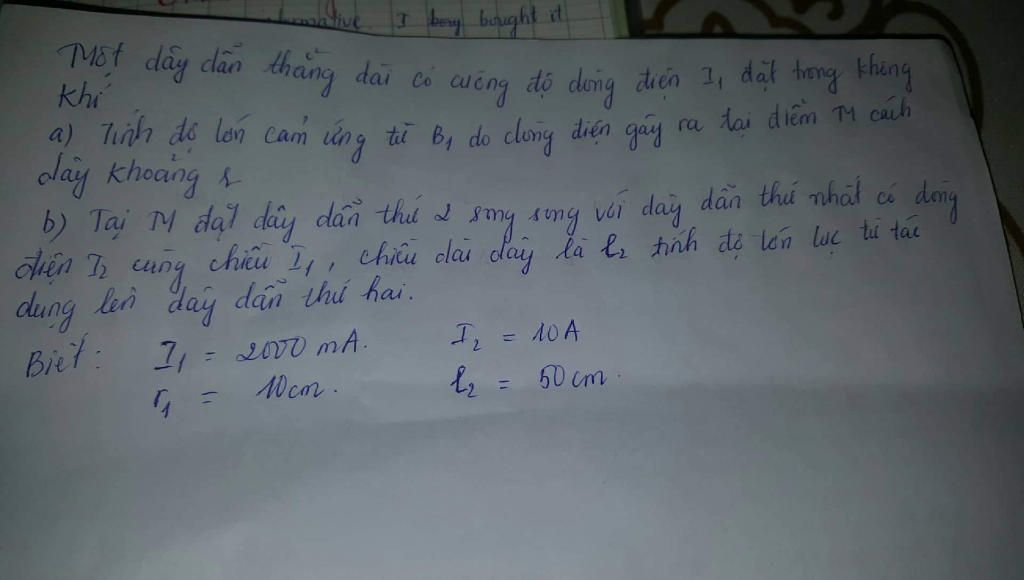 I boy bought it
Một dây dẫn thẳng dài có cường độ dòng điện I₁ đặt trong không
khí
a) Tính độ lớn cảm ứng từ B₁ do dòng điện gây ra tại điểm M cách
dây khoảng r
b) Tại M đặt dây dẫn thứ 2 song song với dây dẫn thứ nhất có dòng
điện I₂ cùng chiều I₁, chiều dài dây là l₂ tính độ lớn lực từ tác
dụng lên dây dẫn thứ hai.
Biết: I₁ = 2000 mA. I₂ = 10A
r₁ = 10cm. l₂ = 50cm.